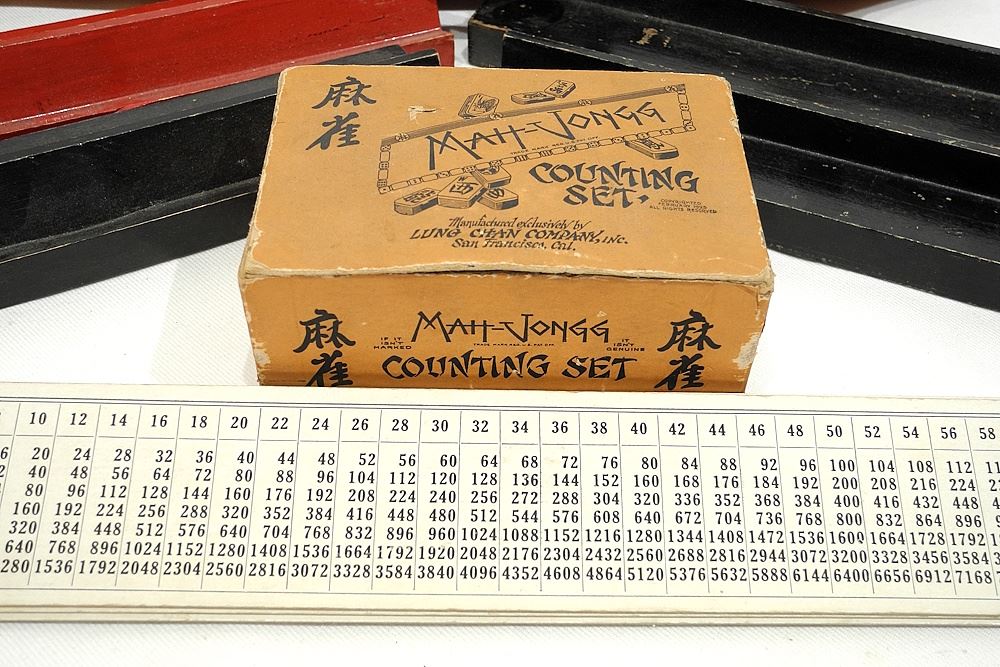 麻
雀
MAH-JONGG
TRADE MARK REG. U.S. PAT. OFF.
COUNTING
SET.
COPYRIGHTED
FEBRUARY 1923
ALL RIGHTS RESERVED
Manufactured exclusively by
LUNG CHAN COMPANY, INC.
San Francisco, Cal.
麻
雀
IF IT
ISN'T
MARKED
MAH-JONGG
TRADE MARK REG. U.S. PAT. OFF.
IT
ISN'T
GENUINE
COUNTING SET
麻
雀
10 12 14 16 18 20 22 24 26 28 30 32 34 36 38 40 42 44 46 48 50 52 54 56 58
20 24 28 32 36 40 44 48 52 56 60 64 68 72 76 80 84 88 92 96 100 104 108 112
40 48 56 64 72 80 88 96 104 112 120 128 136 144 152 160 168 176 184 192 200 208 216 224
80 96 112 128 144 160 176 192 208 224 240 256 272 288 304 320 336 352 368 384 400 416 432 448
160 192 224 256 288 320 352 384 416 448 480 512 544 576 608 640 672 704 736 768 800 832 864 896
320 384 448 512 576 640 704 768 832 896 960 1024 1088 1152 1216 1280 1344 1408 1472 1536 1600 1664 1728 1792
640 768 896 1024 1152 1280 1408 1536 1664 1792 1920 2048 2176 2304 2432 2560 2688 2816 2944 3072 3200 3328 3456 3584
280 1536 1792 2048 2304 2560 2816 3072 3328 3584 3840 4096 4352 4608 4864 5120 5376 5632 5888 6144 6400 6656 6912 7168